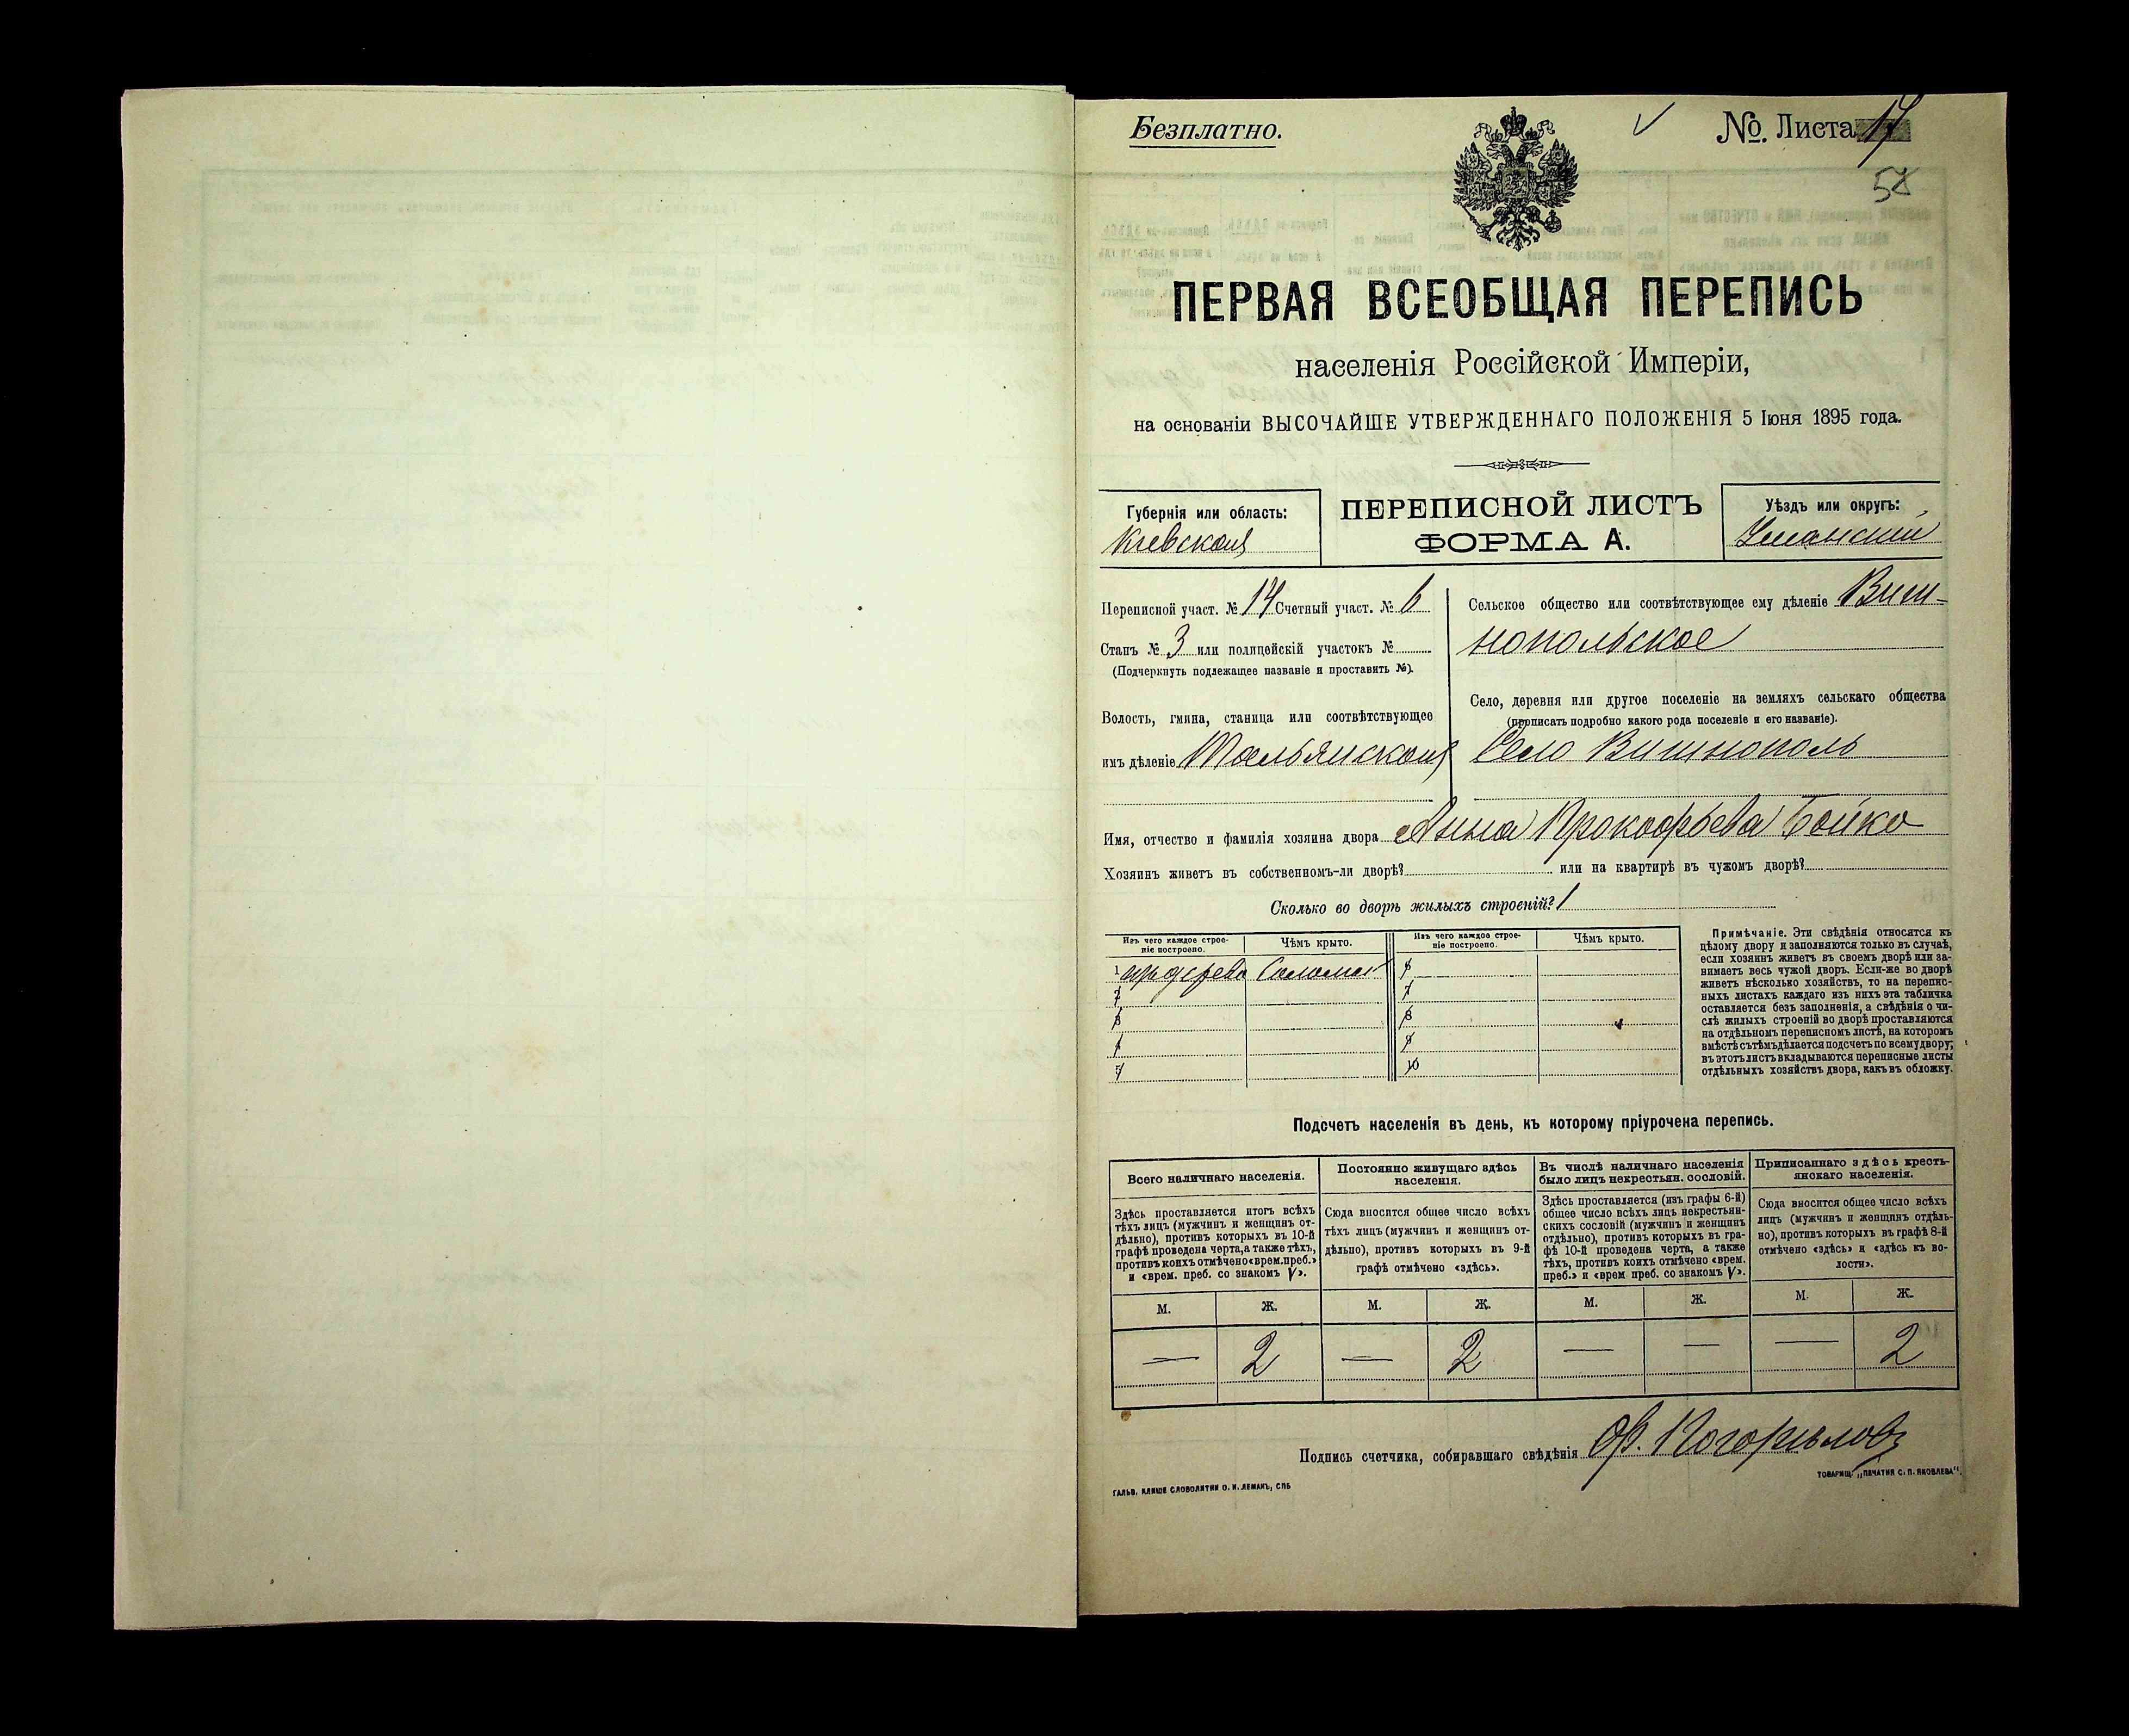 Безплатно.
№. Листа 17
58
ПЕРВАЯ ВСЕОБЩАЯ ПЕРЕПИСЬ
населенія Россійской Имперіи,
на основаніи ВЫСОЧАЙШЕ УТВЕРЖДЕННАГО ПОЛОЖЕНІЯ 5 Іюня 1895 года.
Губернія или область:
Кіевская
ПЕРЕПИСНОЙ ЛИСТЪ
ФОРМА А.
Уѣздъ или округъ:
Уманскій
Переписной участ. № 14 Счетный участ. № 6
Станъ № 3 или полицейскій участокъ №
(Подчеркнуть подлежащее названіе и проставить №).
Волость, гмина, станица или соотвѣтствующее
имъ дѣленіе Тальянская
Сельское общество или соотвѣтствующее ему дѣленіе Виш-
нопольское
Село, деревня или другое поселеніе на земляхъ сельскаго общества
(прописать подробно какого рода поселеніе и его названіе).
Село Вишнополь
Имя, отчество и фамилія хозяина двора Анна Прокофьева Бойко
Хозяинъ живетъ въ собственномъ-ли дворѣ? или на квартирѣ въ чужомъ дворѣ?
Сколько во дворѣ жилыхъ строеній? 1
Изъ чего каждое строе-
ніе построено.
Чѣмъ крыто.
Изъ чего каждое строе-
ніе построено.
Чѣмъ крыто.
1 изъ дерева Соломой 6
2 7
3 8
4 9
5 10
Примѣчаніе. Эти свѣдѣнія относятся къ
цѣлому двору и заполняются только въ случаѣ,
если хозяинъ живетъ въ своемъ дворѣ или за-
нимаетъ весь чужой дворъ. Если-же во дворѣ
живетъ нѣсколько хозяйствъ, то на перепис-
ныхъ листахъ каждаго изъ нихъ эта табличка
оставляется безъ заполненія, а свѣдѣнія о чи-
слѣ жилыхъ строеній во дворѣ проставляются
на отдѣльномъ переписномъ листѣ, на которомъ
вмѣстѣ съ тѣмъ дѣлается подсчетъ по всему двору;
въ этотъ листъ вкладываются переписные листы
отдѣльныхъ хозяйствъ двора, какъ въ обложку.
Подсчетъ населенія въ день, къ которому пріурочена перепись.
Всего наличнаго населенія.
Здѣсь проставляется итогъ всѣхъ
тѣхъ лицъ (мужчинъ и женщинъ от-
дѣльно), противъ которыхъ въ 10-й
графѣ проведена черта, а также тѣхъ,
противъ коихъ отмѣчено «врем. преб.»
и «врем. преб. со знакомъ V».
Постоянно живущаго здѣсь
населенія.
Сюда вносится общее число всѣхъ
тѣхъ лицъ (мужчинъ и женщинъ от-
дѣльно), противъ которыхъ въ 9-й
графѣ отмѣчено «здѣсь».
Въ числѣ наличнаго населенія
было лицъ некрестьян. сословій.
Здѣсь проставляется (изъ графы 6-й)
общее число всѣхъ лицъ некрестьян-
скихъ сословій (мужчинъ и женщинъ
отдѣльно), противъ которыхъ въ гра-
фѣ 10-й проведена черта, а также
тѣхъ, противъ коихъ отмѣчено «врем.
преб.» и «врем преб. со знакомъ V».
Приписаннаго здѣсь кресть-
янскаго населенія.
Сюда вносится общее число всѣхъ
лицъ (мужчинъ и женщинъ отдѣль-
но), противъ которыхъ въ графѣ 8-й
отмѣчено «здѣсь» и «здѣсь къ во-
лости».
М. Ж. М. Ж. М. Ж. М. Ж.
— 2 — 2 — — — 2
Подпись счетчика, собиравшаго свѣдѣнія Ф. Погорѣловъ
ГАЛЬВ. КЛИШЕ СЛОВОЛИТНИ О. И. ЛЕМАНЪ, СПБ
ТОВАРИЩ. „ПЕЧАТНЯ С. П. ЯКОВЛЕВА".